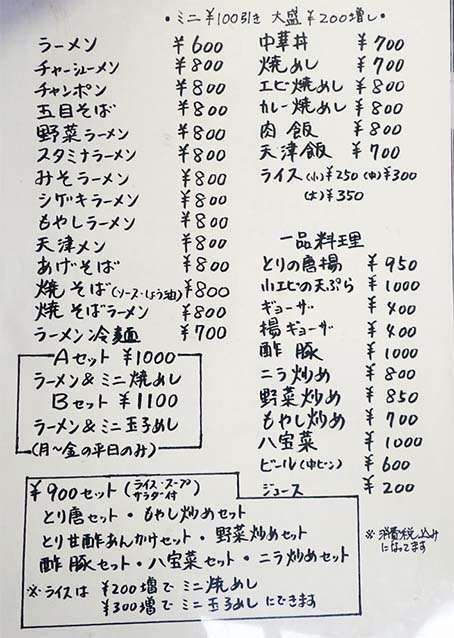 ・ミニ ￥100引き 大盛 ￥200増し・
ラーメン ￥600
チャーシューメン ￥800
チャンポン ￥800
五目そば ￥800
野菜ラーメン ￥800
スタミナラーメン ￥800
みそラーメン ￥800
シゲキラーメン ￥800
もやしラーメン ￥800
天津メン ￥800
あげそば ￥800
焼そば(ソース・しょう油) ￥800
焼そばラーメン ￥800
ラーメン冷麺 ￥700
Aセット ￥1000
ラーメン&ミニ焼めし
Bセット ￥1100
ラーメン&ミニ玉子めし
(月〜金の平日のみ)
中華丼 ￥700
焼めし ￥700
エビ焼めし ￥800
カレー焼めし ￥800
肉飯 ￥800
天津飯 ￥700
ライス(小)￥250(中)￥300
(大)￥350
一品料理
とりの唐揚 ￥950
小エビの天ぷら ￥1000
ギョーザ ￥400
揚ギョーザ ￥400
酢豚 ￥1000
ニラ炒め ￥800
野菜炒め ￥850
もやし炒め ￥700
八宝菜 ￥1000
ビール(中ビン) ￥600
ジュース ￥200
※消費税込み
になってます
￥900セット(ライス・スープ
サラダー付)
とり唐セット・もやし炒めセット
とり甘酢あんかけセット・野菜炒めセット
酢豚セット・八宝菜セット・ニラ炒めセット
※ライスは ￥200増で ミニ焼めし
￥300増で ミニ玉子めしにできます